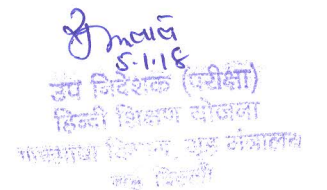 5.1.18
उप निदेशक (परीक्षा)
हिन्दी शिक्षण योजना
राजभाषा विभाग, गृह मंत्रालय
नई दिल्ली